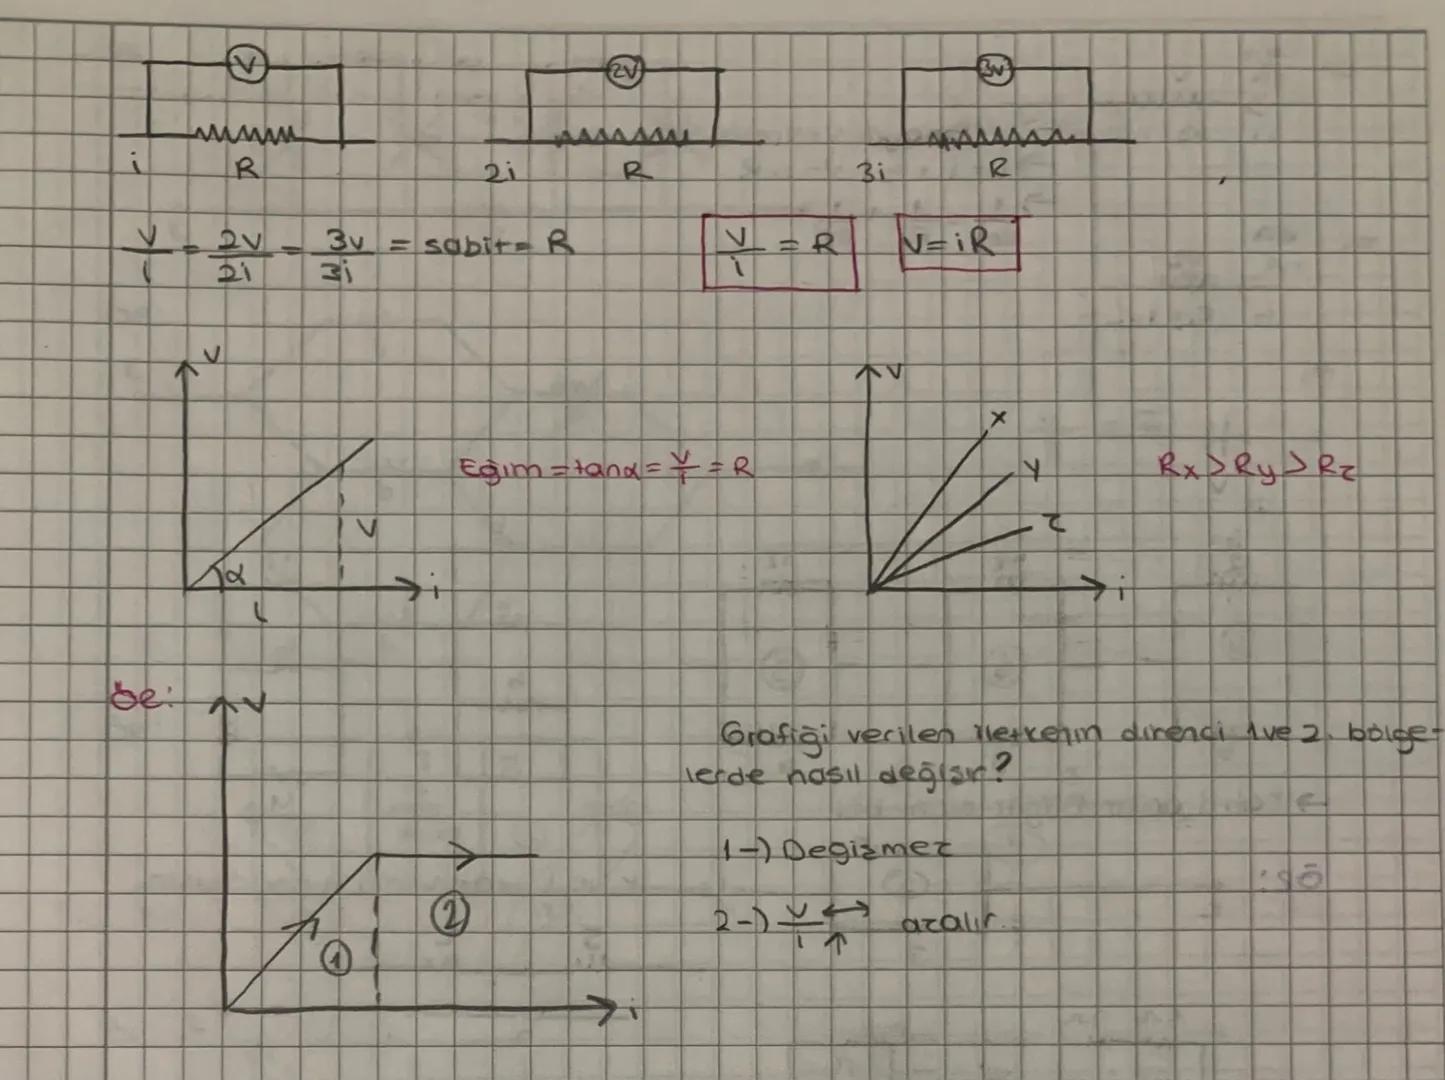 V 2V 3V
i R 2i R 3i R
V/i = 2V/2i = 3V/3i = sabit = R V/i = R V = iR
V V
X
Eğim = tanα = V/i = R Y Rx > Ry > Rz
V Z
α i i
i
öe: V
Grafiği verilen iletkenin direnci 1 ve 2. bölge-
lerde nasıl değişir?
1-) Değişmez
2-) V/i ↔ ↑ azalır.
① ②
i